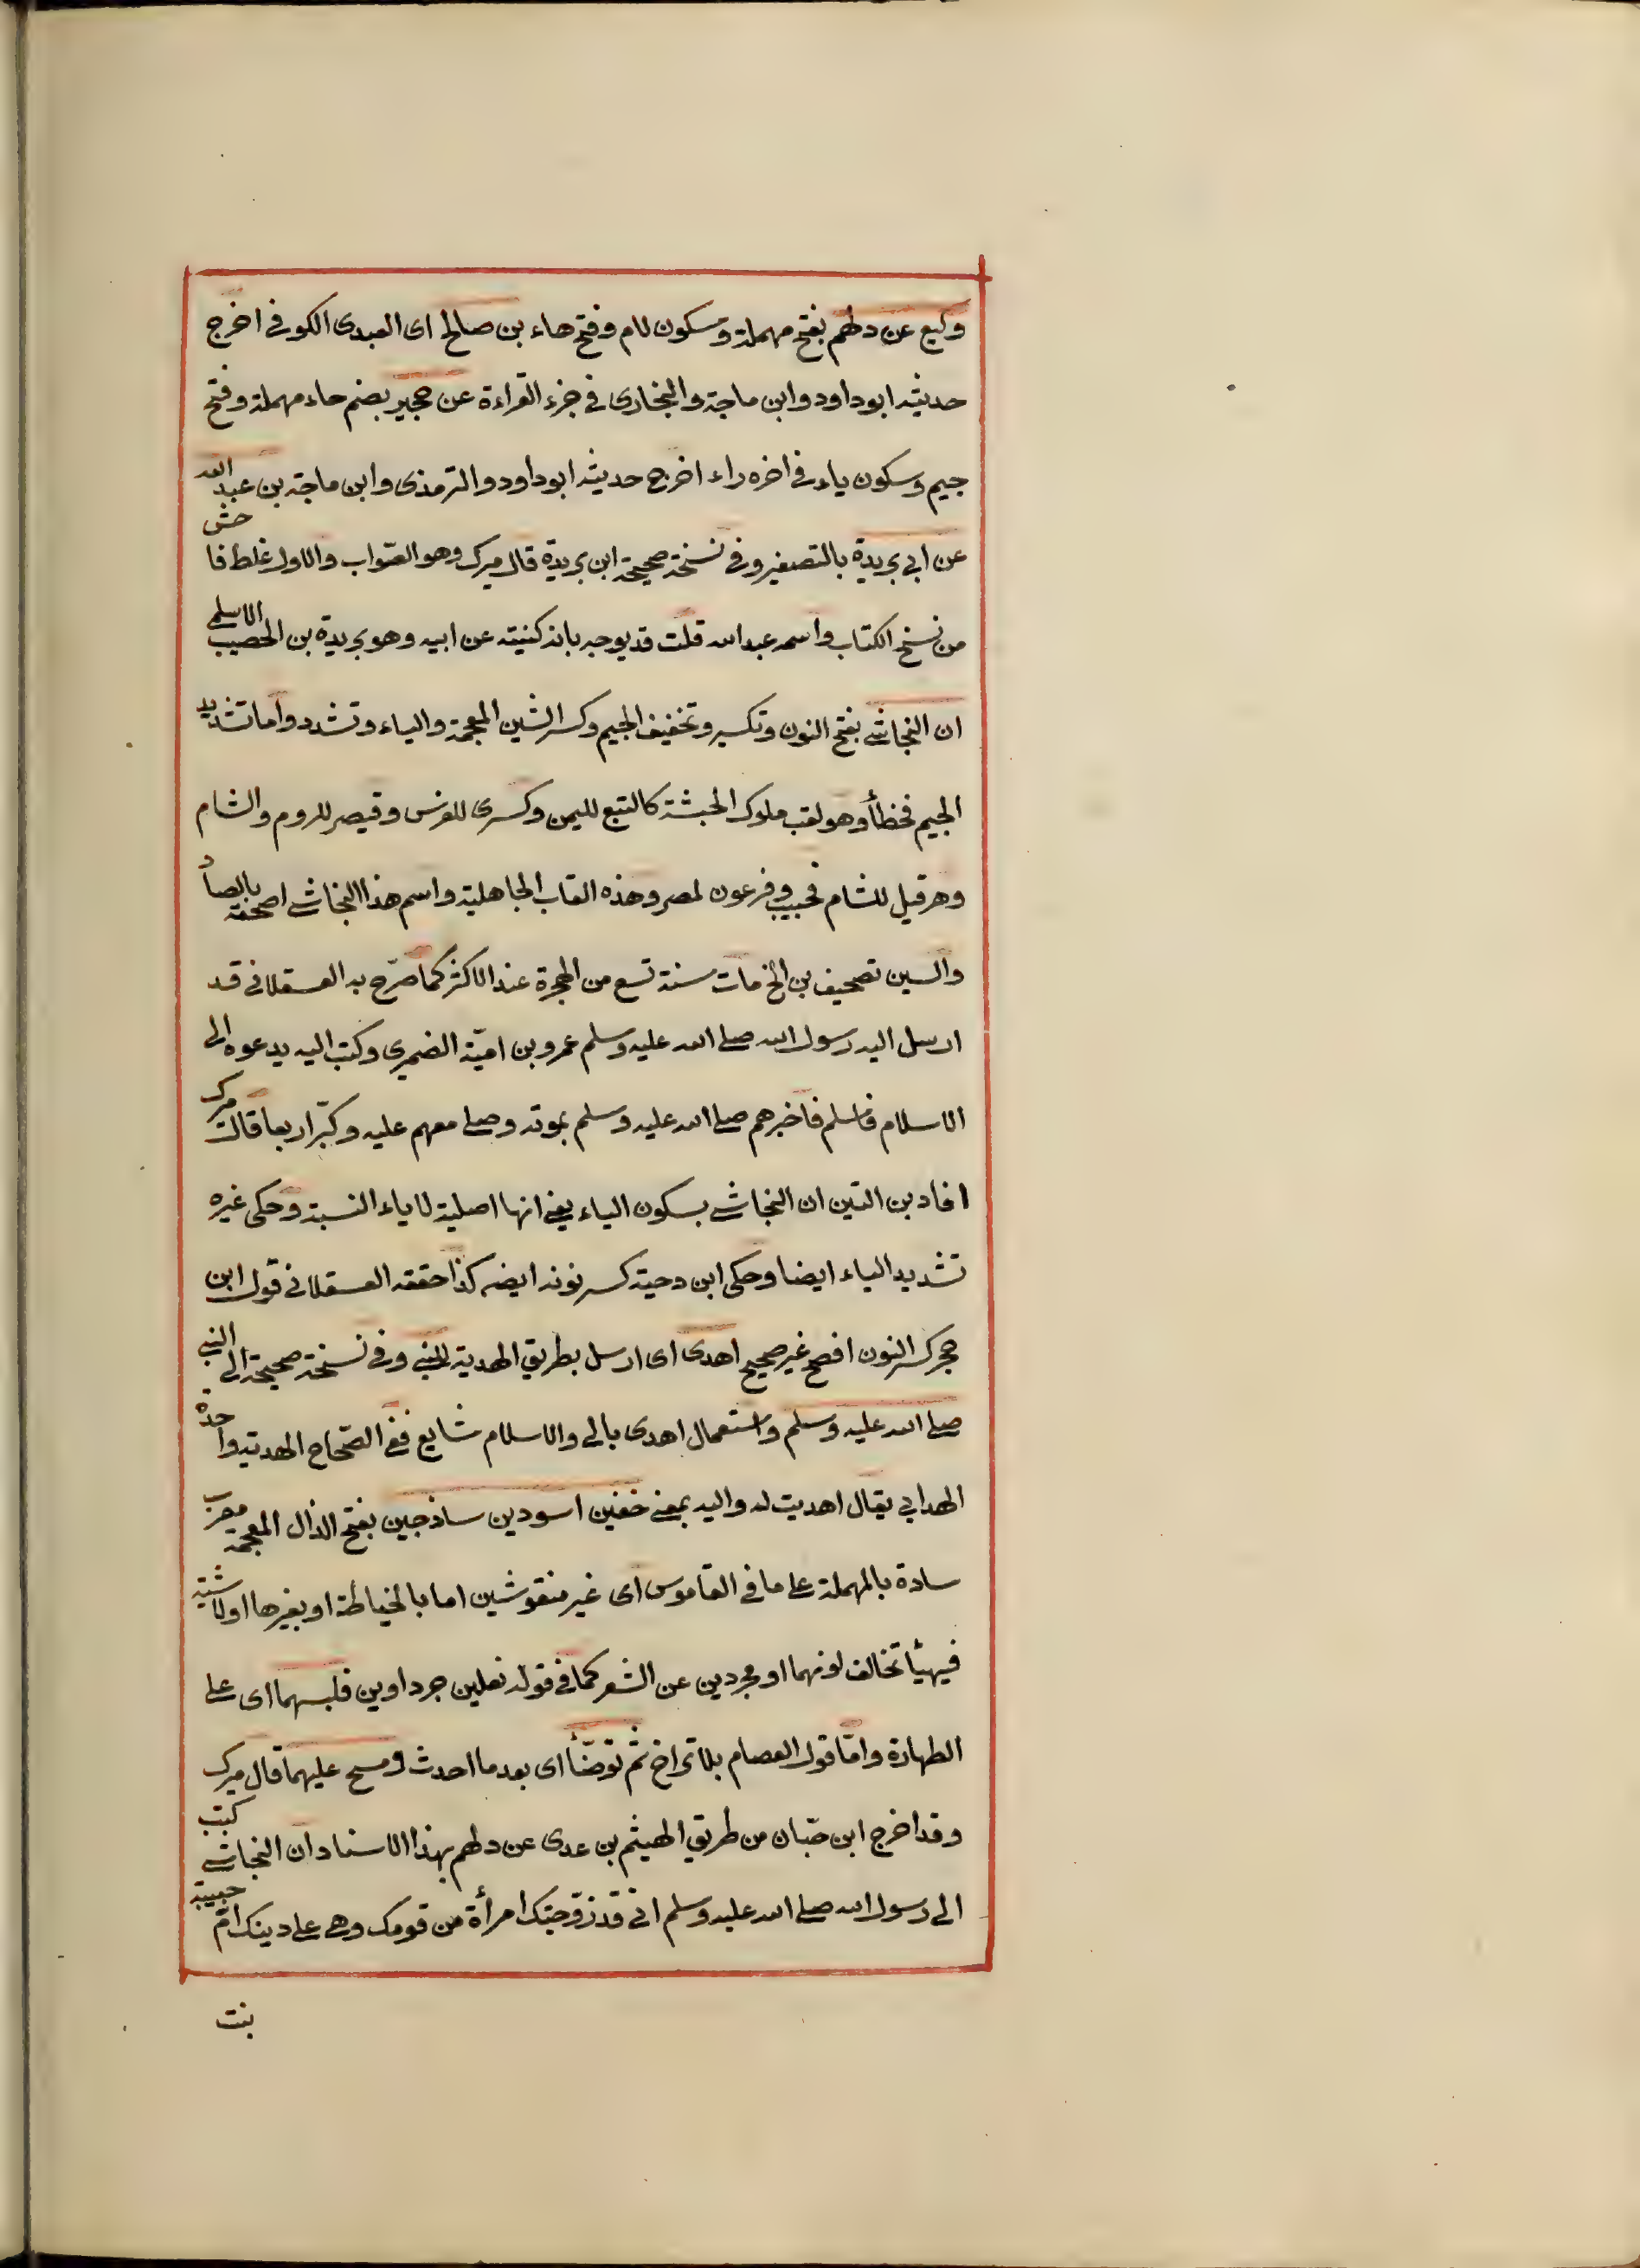 وكيع عن دلهم بفتح مهملة وسكون لام وفتح هاء بن صالح اى العبدى الكوفى اخرج
حديثه ابوداود وابن ماجة والبخارى فى جزء القراءة عن حجير بضم حاء مهملة وفتح
جيم وسكون ياء فى اخره راء اخرج حديثه ابوداود والترمذى وابن ماجة بن عبد الله
عن ابي بريدة بالتصغير وفى نسخة صحيحة ابن بريدة قال ميرك وهو الصّواب والاول غلط فاحش
من نسخ الكتاب واسمه عبدالله قلت قد يوجه بانه كنيته عن ابيه وهو بريدة بن الحصيب الاسلمى
ان النجاشى بفتح النون وتكسر وتخفيف الجيم وكسر الشين المعجمة والياء وتشدد واما تشديد
الجيم فخطأ وهو لقب ملوك الحبشة كالتبع لليمن وكسرى للفرس وقيصر للروم والشام
وهرقيل للشام فحبيب وفرعون لمصر وهذه القاب الجاهلية واسم هذا النجاشى اصحمة بالصاد
والسين تصحيف بن الخ مات سنة تسع من الهجرة عند الاكثر كما صرّح به العسقلانى قد
ارسل اليه رسول الله صلى الله عليه وسلم عمرو بن اميّة الضمرى وكتب اليه يدعوه الى
الاسلام فاسلم فاخبرهم صلى الله عليه وسلم بموته وصلى معهم عليه وكبّر اربعا قال ميرك
افاد بن التين ان النجاشى بسكون الياء يعنى انها اصلية لا ياء النسبة وحكى غيره
تشديد الياء ايضا وحكى ابن دحية كسر نونه ايضه كذا حققه العسقلانى قول ابن
حجر كسر النون افصح غير صحيح اهدى اى ارسل بطريق الهدية للنبى وفى نسخة صحيحة الى النبى
صلى الله عليه وسلم واستعمال اهدى بالى والاسلام شايع ففى الصّحاح الهدية واحدة
الهدايي يقال اهديت له واليه بمعنى خفين اسودين ساذجين بفتح الذال المعجمة معرب
سادة بالمهملة على ما فى القاموس اى غير منقوشين اما بالخياطة او بغيرها اولاشية
فيهيأ تخالف لونهما او مجردين عن الشعر كما فى قوله نعلين جرداوين فلبسهما اى على
الطهارة وامّا قول العصام بلا تراخ ثمّ توضّأ اى بعدما احدث ومسح عليهما قال ميرك
وقد اخرج ابن حبّان من طريق الهيثم بن عدى عن دلهم بهذا الاسناد ان النجاشى كتب
الى رسول الله صلى الله عليه وسلم انى قد زوّجتك امرأة من قومك وهى على دينك امّ حبيبة
بنت